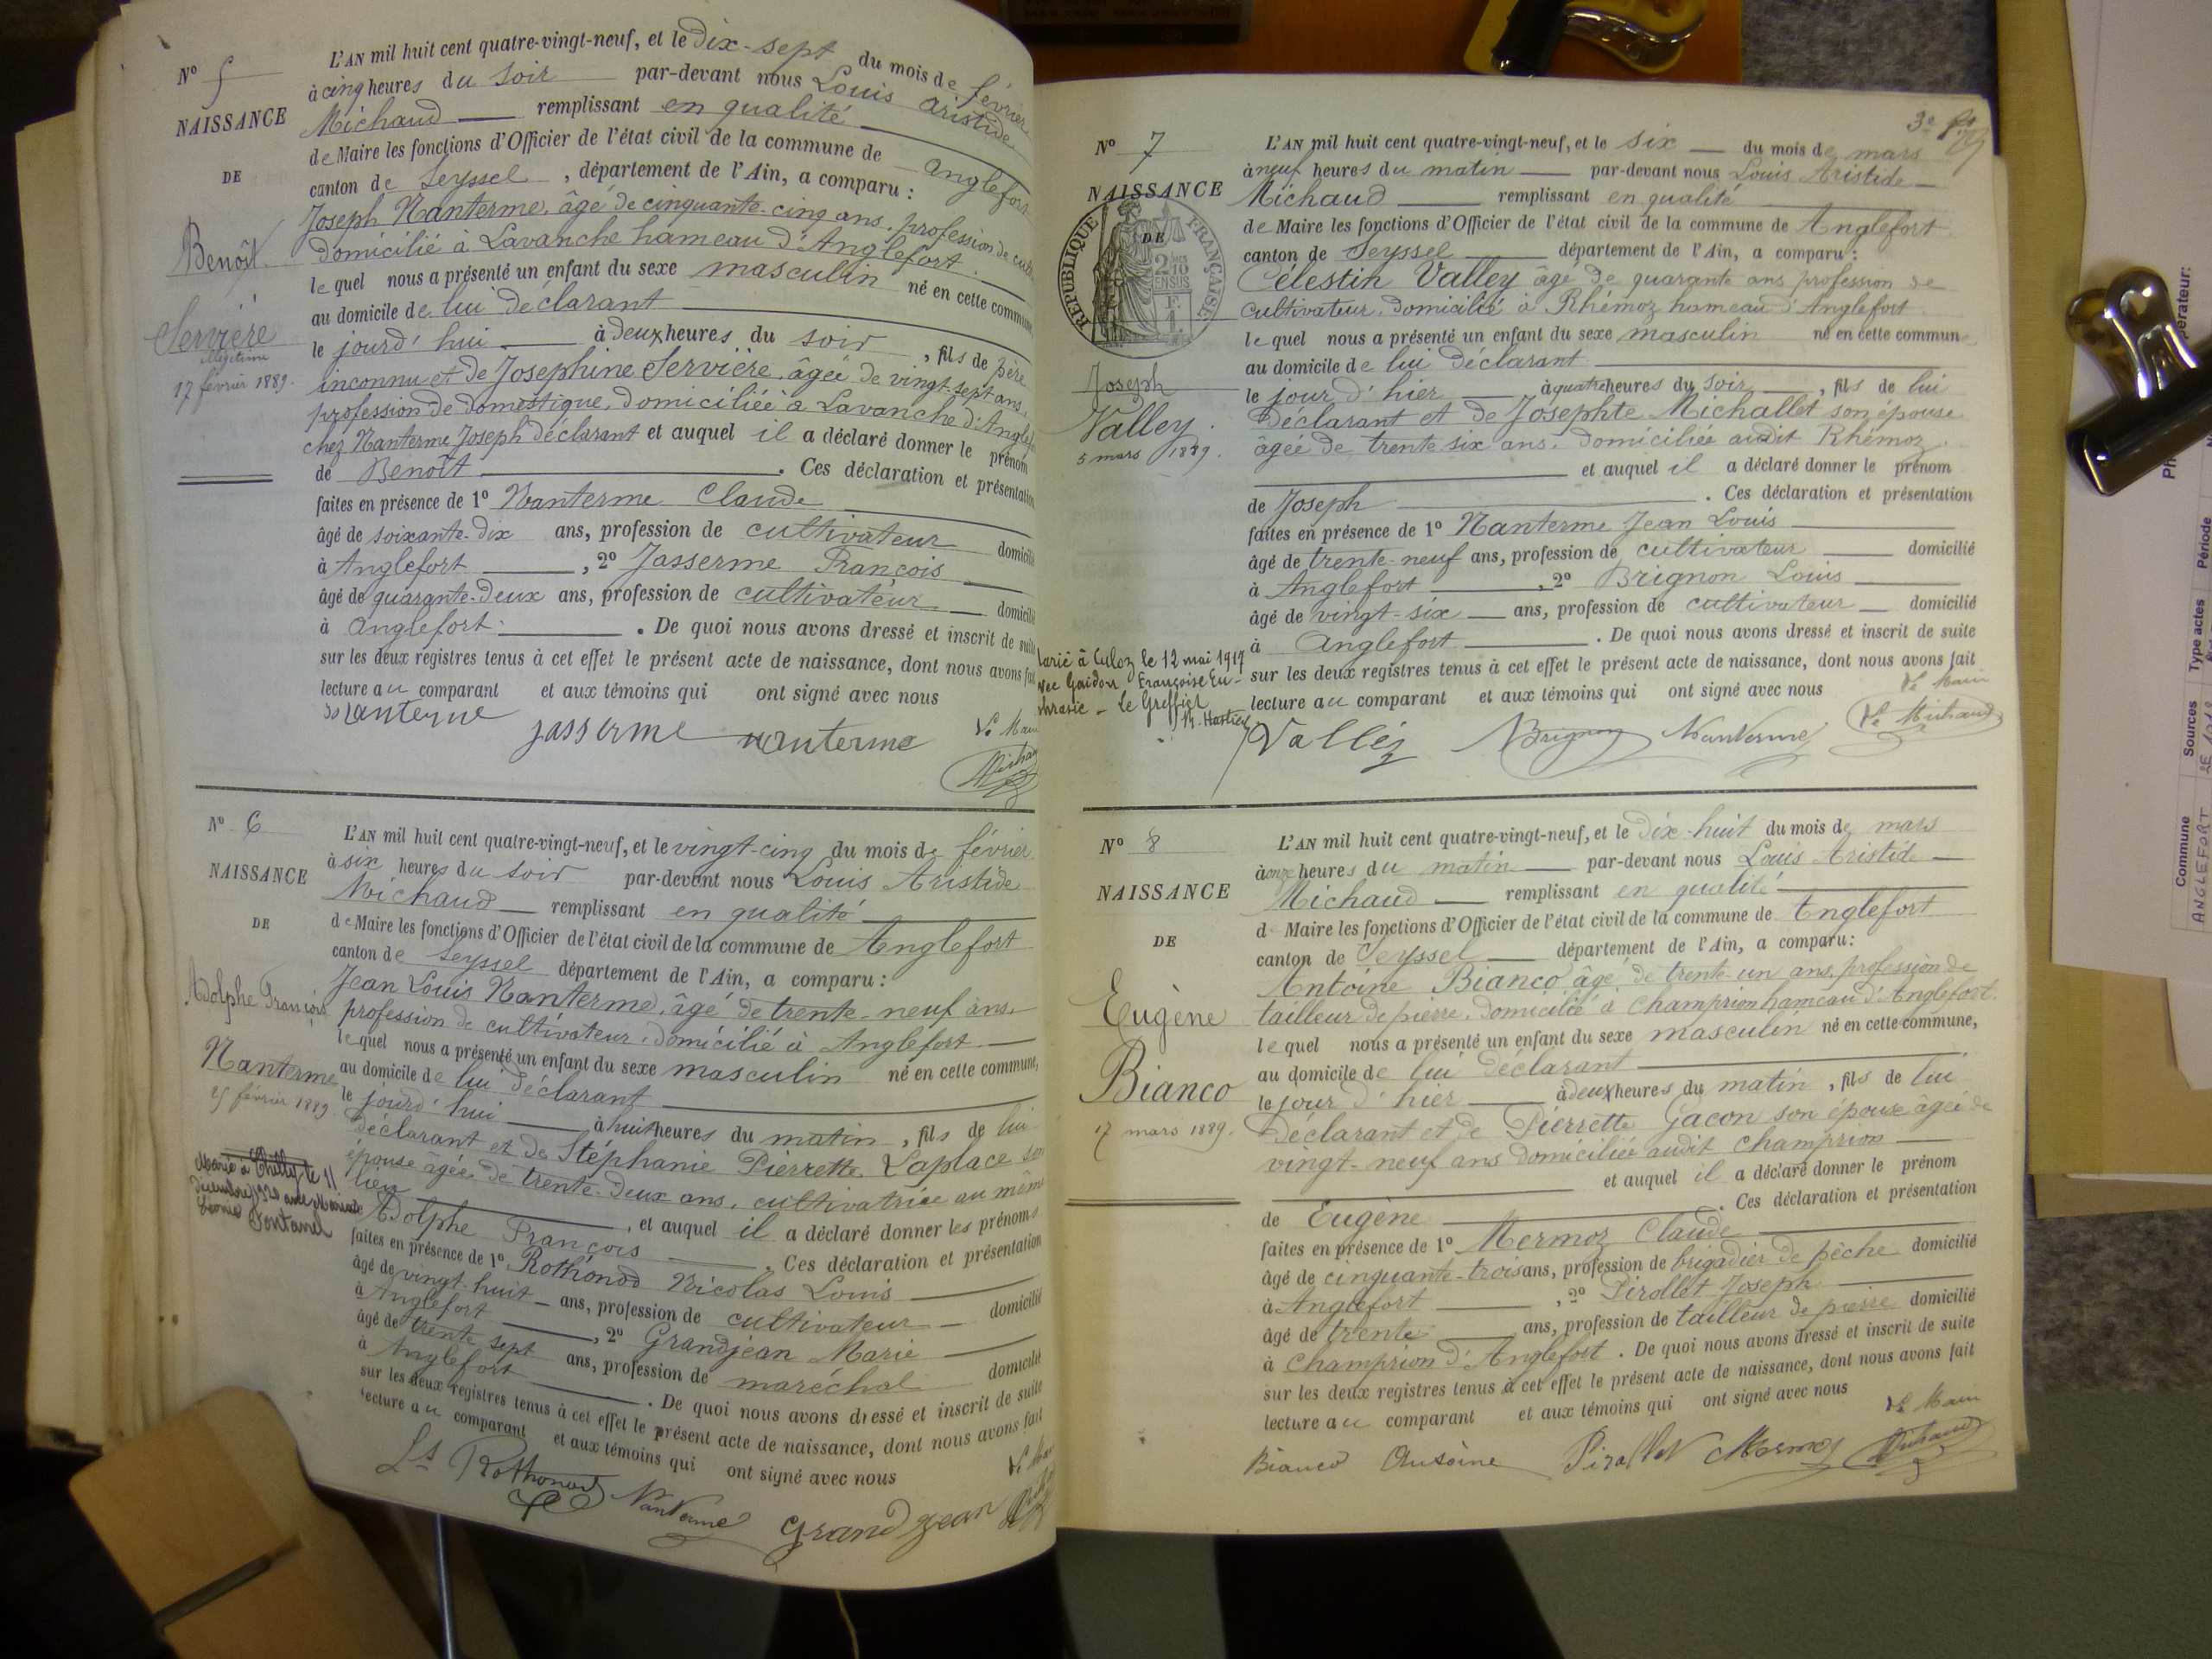 N° 5
NAISSANCE
DE
Benoît
Servière
illégitime
17 février 1889.
L'AN mil huit cent quatre-vingt-neuf, et le dix-sept du mois de février
à cinq heures du soir par-devant nous Louis Aristide
Michaud remplissant en qualité
de Maire les fonctions d'Officier de l'état civil de la commune de Anglefort
canton de Seyssel, département de l'Ain, a comparu :
Joseph Nanterme, âgé de cinquante-cinq ans, profession de
domicilié à Lavanche hameau d'Anglefort.
lequel nous a présenté un enfant du sexe masculin né en cette commune
au domicile de lui déclarant
le jourd'hui à deux heures du soir, fils de père
inconnu et de Josephine Servière, âgée de vingt-sept ans,
profession de domestique, domiciliée à Lavanche d'Anglefort
chez Nanterme Joseph déclarant et auquel il a déclaré donner le prénom
de Benoît. Ces déclaration et présentation
faites en présence de 1° Nanterme Claude
âgé de soixante-dix ans, profession de cultivateur domicilié
à Anglefort, 2° Jasserme François
âgé de quarante-deux ans, profession de cultivateur domicilié
à Anglefort. De quoi nous avons dressé et inscrit de suite
sur les deux registres tenus à cet effet le présent acte de naissance, dont nous avons fait
lecture au comparant et aux témoins qui ont signé avec nous
Nanterme jasserme nanterme Le Maire
Michaud
N° 6
NAISSANCE
DE
Adolphe François
Nanterme
25 février 1889
Marié à Chilly, le 11
décembre 1920 avec Mariade
Léonie Fontanel
L'AN mil huit cent quatre-vingt-neuf, et le vingt-cinq du mois de février
à six heures du soir par-devant nous Louis Aristide
Michaud remplissant en qualité
de Maire les fonctions d'Officier de l'état civil de la commune de Anglefort
canton de Seyssel département de l'Ain, a comparu :
Jean Louis Nanterme, âgé de trente-neuf ans,
profession de cultivateur, domicilié à Anglefort
lequel nous a présenté un enfant du sexe masculin né en cette commune,
au domicile de lui déclarant
le jourd'hui à huit heures du matin, fils de lui
déclarant et de Stéphanie Pierrette Laplace son
épouse âgée de trente-deux ans, cultivatrice au même
lieu, et auquel il a déclaré donner les prénoms
Adolphe François. Ces déclaration et présentation
faites en présence de 1° Rothonod Nicolas Louis
âgé de vingt-huit ans, profession de cultivateur domicilié
à Anglefort, 2° Grandjean Marie
âgé de trente sept ans, profession de maréchal domicilié
à Anglefort. De quoi nous avons dressé et inscrit de suite
sur les deux registres tenus à cet effet le présent acte de naissance, dont nous avons fait
lecture au comparant et aux témoins qui ont signé avec nous
Ls Rothonod Nanterme Grandjean Le Maire
3e
N° 7
NAISSANCE
DE
REPUBLIQUE FRANÇAISE
Joseph
Valley.
5 mars 1889.
Marié à Culoz le 12 mai 1917
avec Goidon Françoise Eu-
phrasie - Le Greffier
L'AN mil huit cent quatre-vingt-neuf, et le six du mois de mars
à neuf heures du matin par-devant nous Louis Aristide
Michaud remplissant en qualité
de Maire les fonctions d'Officier de l'état civil de la commune de Anglefort
canton de Seyssel département de l'Ain, a comparu :
Célestin Valley âgé de quarante ans profession de
cultivateur, domicilié à Rhémoz hameau d'Anglefort
lequel nous a présenté un enfant du sexe masculin né en cette commune
au domicile de lui déclarant
le jour d'hier à quatre heures du soir, fils de lui
déclarant et de Josephte Michallet son épouse
âgée de trente six ans, domiciliée audit Rhémoz
et auquel il a déclaré donner le prénom
de Joseph. Ces déclaration et présentation
faites en présence de 1° Nanterme Jean Louis
âgé de trente-neuf ans, profession de cultivateur domicilié
à Anglefort, 2° Brignon Louis
âgé de vingt-six ans, profession de cultivateur domicilié
à Anglefort. De quoi nous avons dressé et inscrit de suite
sur les deux registres tenus à cet effet le présent acte de naissance, dont nous avons fait
lecture au comparant et aux témoins qui ont signé avec nous Le Maire
Valley Brignon Nanterme Michaud
N° 8
NAISSANCE
DE
Eugène
Bianco
17 mars 1889.
L'AN mil huit cent quatre-vingt-neuf, et le dix-huit du mois de mars
à onze heures du matin par-devant nous Louis Aristide
Michaud remplissant en qualité
d Maire les fonctions d'Officier de l'état civil de la commune de Anglefort
canton de Seyssel département de l'Ain, a comparu :
Antoine Bianco âgé de trente-un ans, profession de
tailleur de pierre, domicilié à Champrion hameau d'Anglefort.
lequel nous a présenté un enfant du sexe masculin né en cette commune,
au domicile de lui déclarant
le jour d'hier à deux heures du matin, fils de lui
déclarant et de Pierrette Gacon son épouse âgée de
vingt-neuf ans domiciliée audit Champrion
et auquel il a déclaré donner le prénom
de Eugène. Ces déclaration et présentation
faites en présence de 1° Mermoz Claude
âgé de cinquante-trois ans, profession de brigadier de pêche domicilié
à Anglefort, 2° Pirollet Joseph
âgé de trente ans, profession de tailleur de pierre domicilié
à Champrion d'Anglefort. De quoi nous avons dressé et inscrit de suite
sur les deux registres tenus à cet effet le présent acte de naissance, dont nous avons fait
lecture au comparant et aux témoins qui ont signé avec nous Le Maire
Bianco Antoine Pirollet Mermoz Michaud
Commune Sources Type actes Période
ANGLEFORT